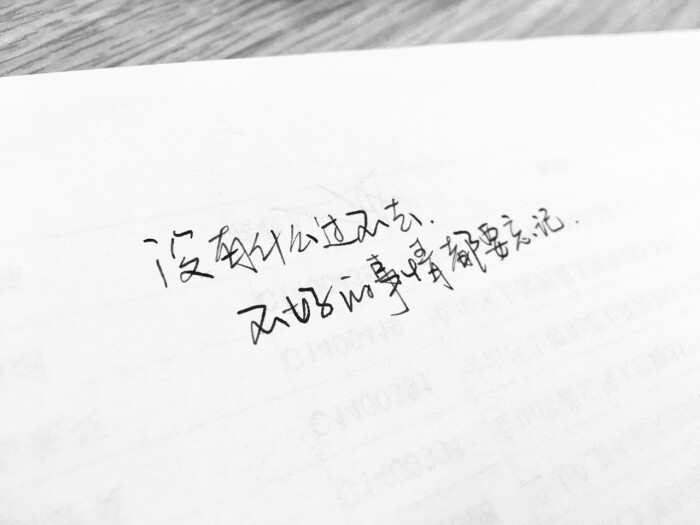 没有什么过不去.
不好的事情都要忘记.